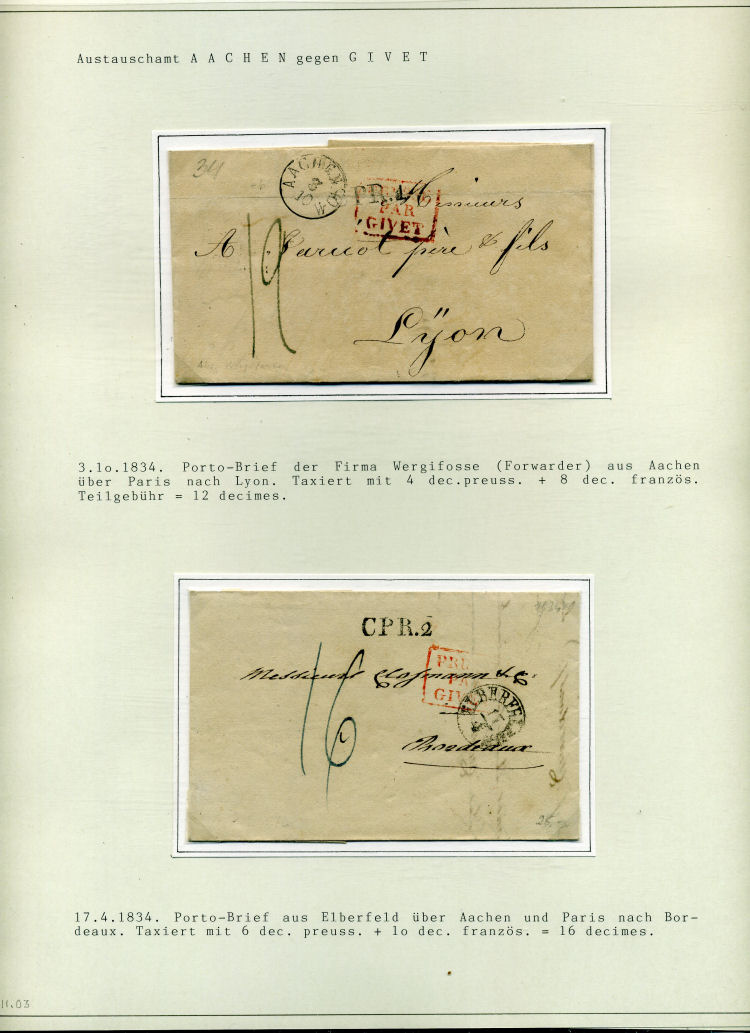 Austauschamt A A C H E N gegen G I V E T
34
AACHEN
3
10
PR.1.
PAR
GIVET
Messieurs
A. Carnot père & fils
Lÿon
3.1o.1834. Porto-Brief der Firma Wergifosse (Forwarder) aus Aachen
über Paris nach Lyon. Taxiert mit 4 dec.preuss. + 8 dec. französ.
Teilgebühr = 12 decimes.
CPR.2
PRU
PA
GIV
Messieurs Hofmann & C:
16
ELBERFE
17
Bordeaux
17.4.1834. Porto-Brief aus Elberfeld über Aachen und Paris nach Bor-
deaux. Taxiert mit 6 dec. preuss. + 1o dec. französ. = 16 decimes.
11.03